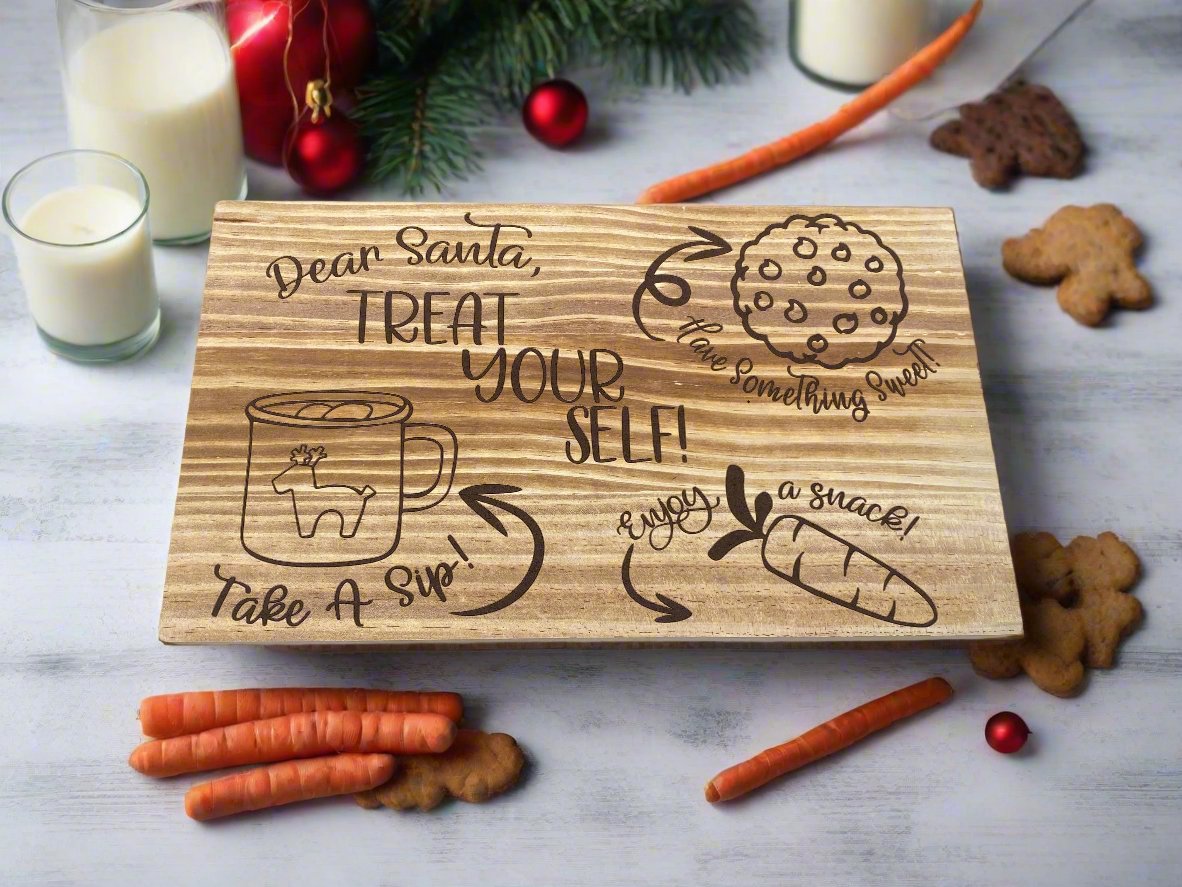 Dear Santa,
TREAT
YOUR
SELF!
Have Something Sweet!
Take A Sip!
Enjoy a snack!